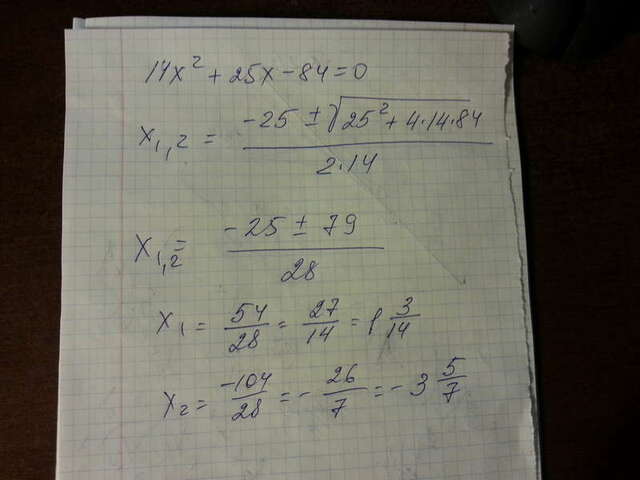 14x² + 25x − 84 = 0
x₁,₂ = (−25 ± √(25² + 4·14·84)) / (2·14)
x₁,₂ = (−25 ± 79) / 28
x₁ = 54/28 = 27/14 = 1 3/14
x₂ = −104/28 = − 26/7 = − 3 5/7